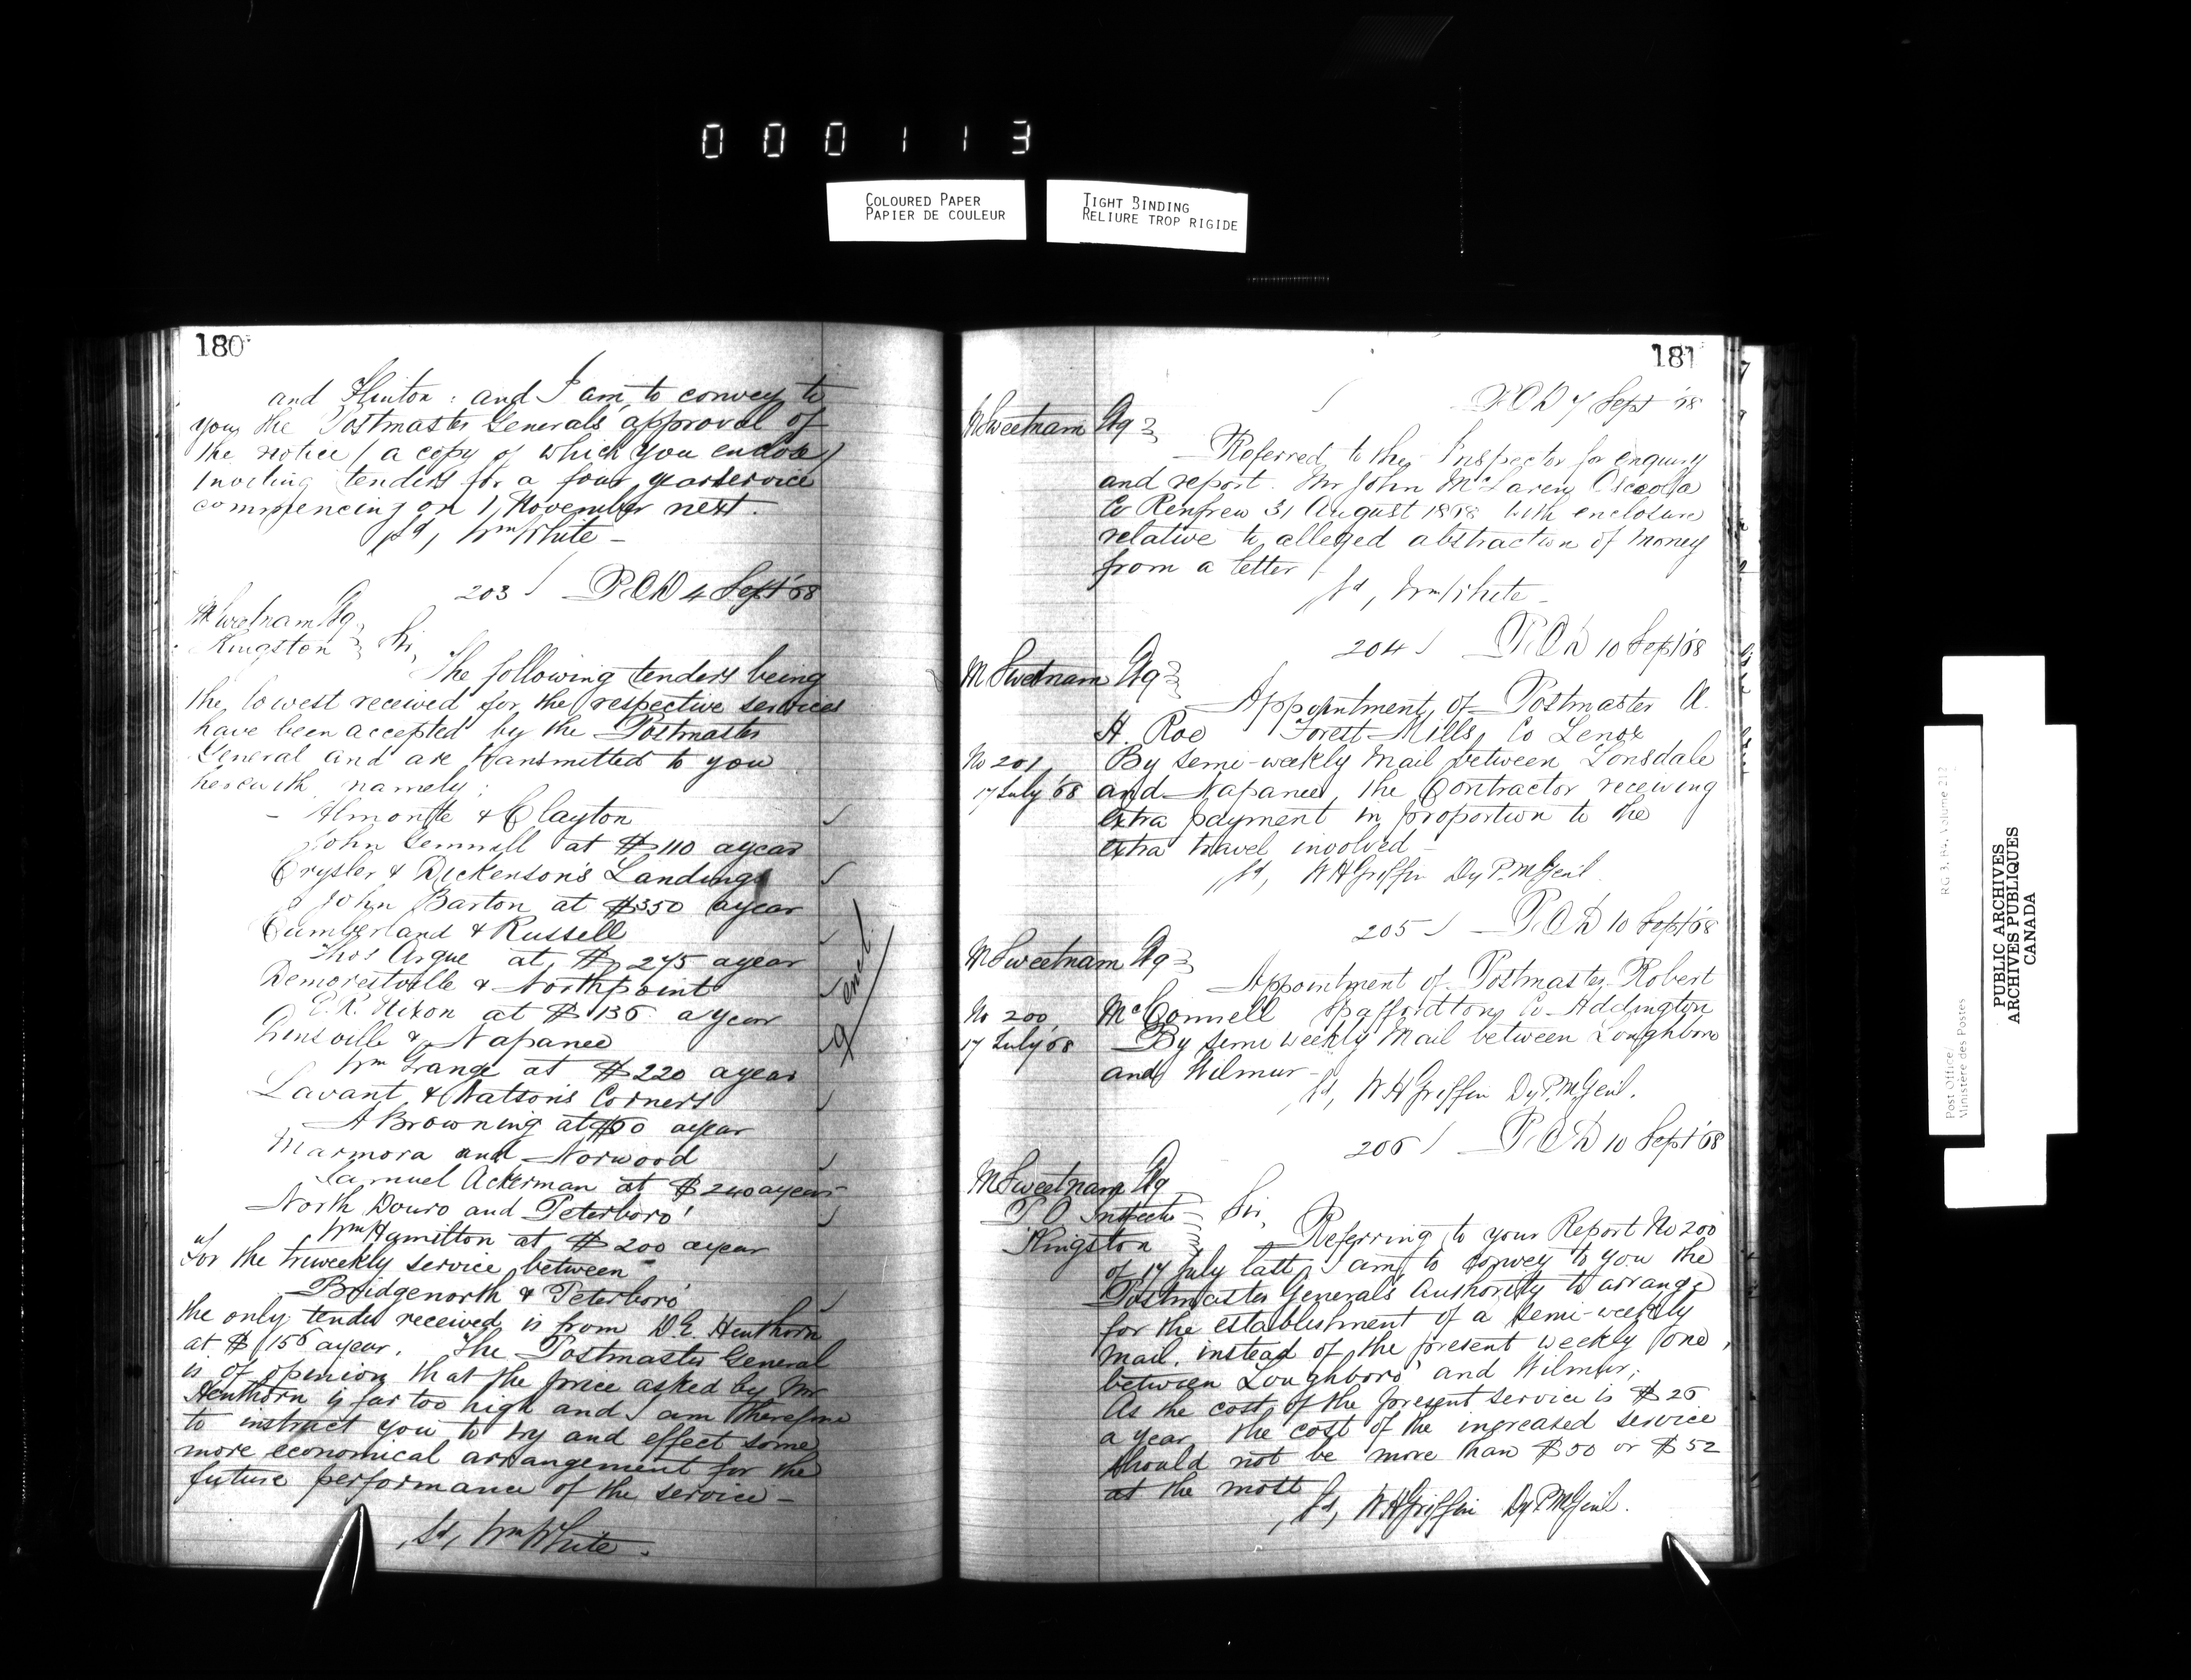 000113
COLOURED PAPER
PAPIER DE COULEUR
TIGHT BINDING
RELIURE TROP RIGIDE
180
and Flinton : and I am to convey to
you the Postmaster Generals' approval of
the notice (a copy of which you enclose)
inviting tenders for a four year service
commencing on 1 November next.
sd, Wm White -
203 P.O.D 4 Sept '68
M Sweetnam Esq
Kingston
Sir,
The following tenders being
the lowest received for the respective services
have been accepted by the Postmaster
General and are transmitted to you
herewith namely :
- Almonte & Clayton
John Gemmill at $110 a year
Crysler & Dickenson's Landing
John Barton at $350 a year
Cumberland & Russell
Thos Argue at $275 a year
Demorestville & Northpoint
E.R. Nixon at $136 a year
Ginsville & Napanee
Wm Grange at $220 a year
Lavant & Watsons Corners
A Browning at $60 a year
Marmora and Norwood
Samuel Ackerman at $240 a year
North Douro and Peterboro'
Wm Hamilton at $200 a year
For the triweekly service between
Bridgenorth & Peterboro'
the only tender received is from D E Henthorn
at $156 a year. The Postmaster General
is of opinion that the price asked by Mr
Henthorn is far too high and I am therefore
to instruct you to try and effect some
more economical arrangement for the
future performance of the service -
sd, Wm White.
9 encl.
181
P.O.D 7 Sept '68
M Sweetnam Esq
Referred to the Inspector for enquiry
and report. Mr John McLaren Osceola
Co Renfrew 31 August 1868 with enclosure
relative to alleged abstraction of money
from a letter
sd, Wm White -
204 P.O.D 10 Sept '68
M Sweetnam Esq
Appointment of Postmaster A.
H. Roe Forest Mills, Co Lenox
No 201
17 July '68
By semi-weekly Mail between Lonsdale
and Napanee, the Contractor receiving
extra payment in proportion to the
extra travel involved -
sd, W H Griffin Dy P.M Genl.
205 P.O.D 10 Sept '68
M Sweetnam Esq
Appointment of Postmaster Robert
No 200
17 July '68
McConnell Spaffordton, Co Addington
By semi weekly Mail between Loughboro
and Wilmur -
sd, W H Griffin Dy P.M Genl.
206 P.O.D 10 Sept '68
M Sweetnam Esq
P O Inspector
Kingston
Sir,
Referring to your Report No 200
of 17 July last, I am to convey to you the
Postmaster Generals Authority to arrange
for the establishment of a semi-weekly
mail, instead of the present weekly one,
between Loughboro' and Wilmur;
As the cost of the present service is $26
a year the cost of the increased service
should not be more than $50 or $52
at the most
sd, W H Griffin Dy P M Genl.
Post Office/
Ministère des Postes
RG 3, B4, Volume 212
PUBLIC ARCHIVES
ARCHIVES PUBLIQUES
CANADA